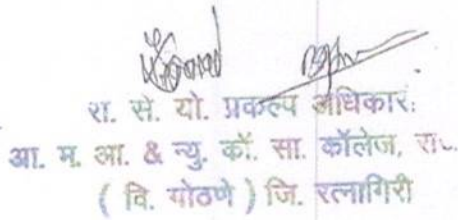 रा. से. यो. प्रकल्प अधिकारी
आ. म. आ. & न्यु. कॉ. सा. कॉलेज,
( वि. गोठणे ) जि. रत्नागिरी